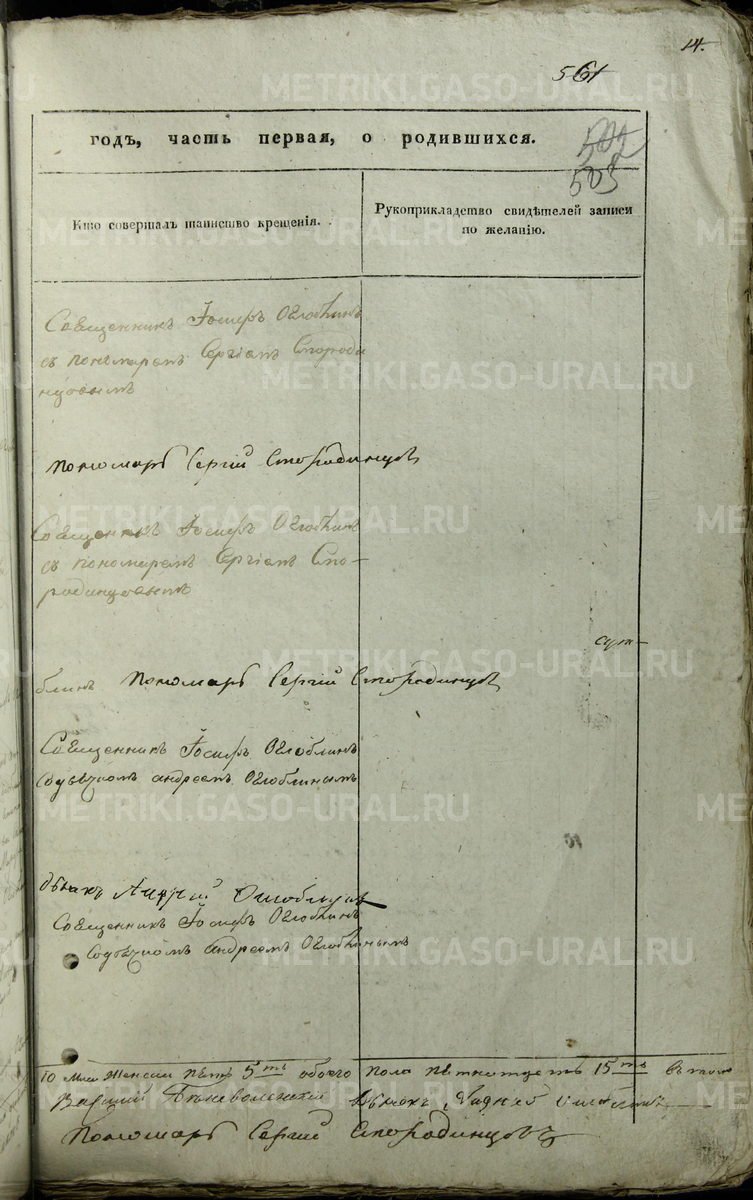 14.
561
годъ, часть первая, о родившихся.
502
503
Кто совершалъ таинство крещенія.
Рукоприкладство свидѣтелей записи
по желанію.
Священникъ Іосифъ Оглоблинъ
съ пономаремъ Сергіемъ Смороди
нцовымъ
пономарь Сергій Смородинцовъ
Священникъ Іосифъ Оглоблинъ
съ пономаремъ Сергіемъ Смо-
родинцовымъ
блинъ пономарь Сергій Смородинцовъ
Священникъ Іосифъ Оглоблинъ
содьячкомъ андреемъ Оглоблинымъ
дьячекъ Андрей Оглоблинъ
Священникъ Іосифъ Оглоблинъ
содьячкомъ андреемъ Оглоблинымъ
10 женска пять 5ть обоего пола пятнатцеть 15ть
дьячекъ Андрей Оглоблинъ
Пономарь Сергий Смородинцовъ
METRIKI.GASO-URAL.RU